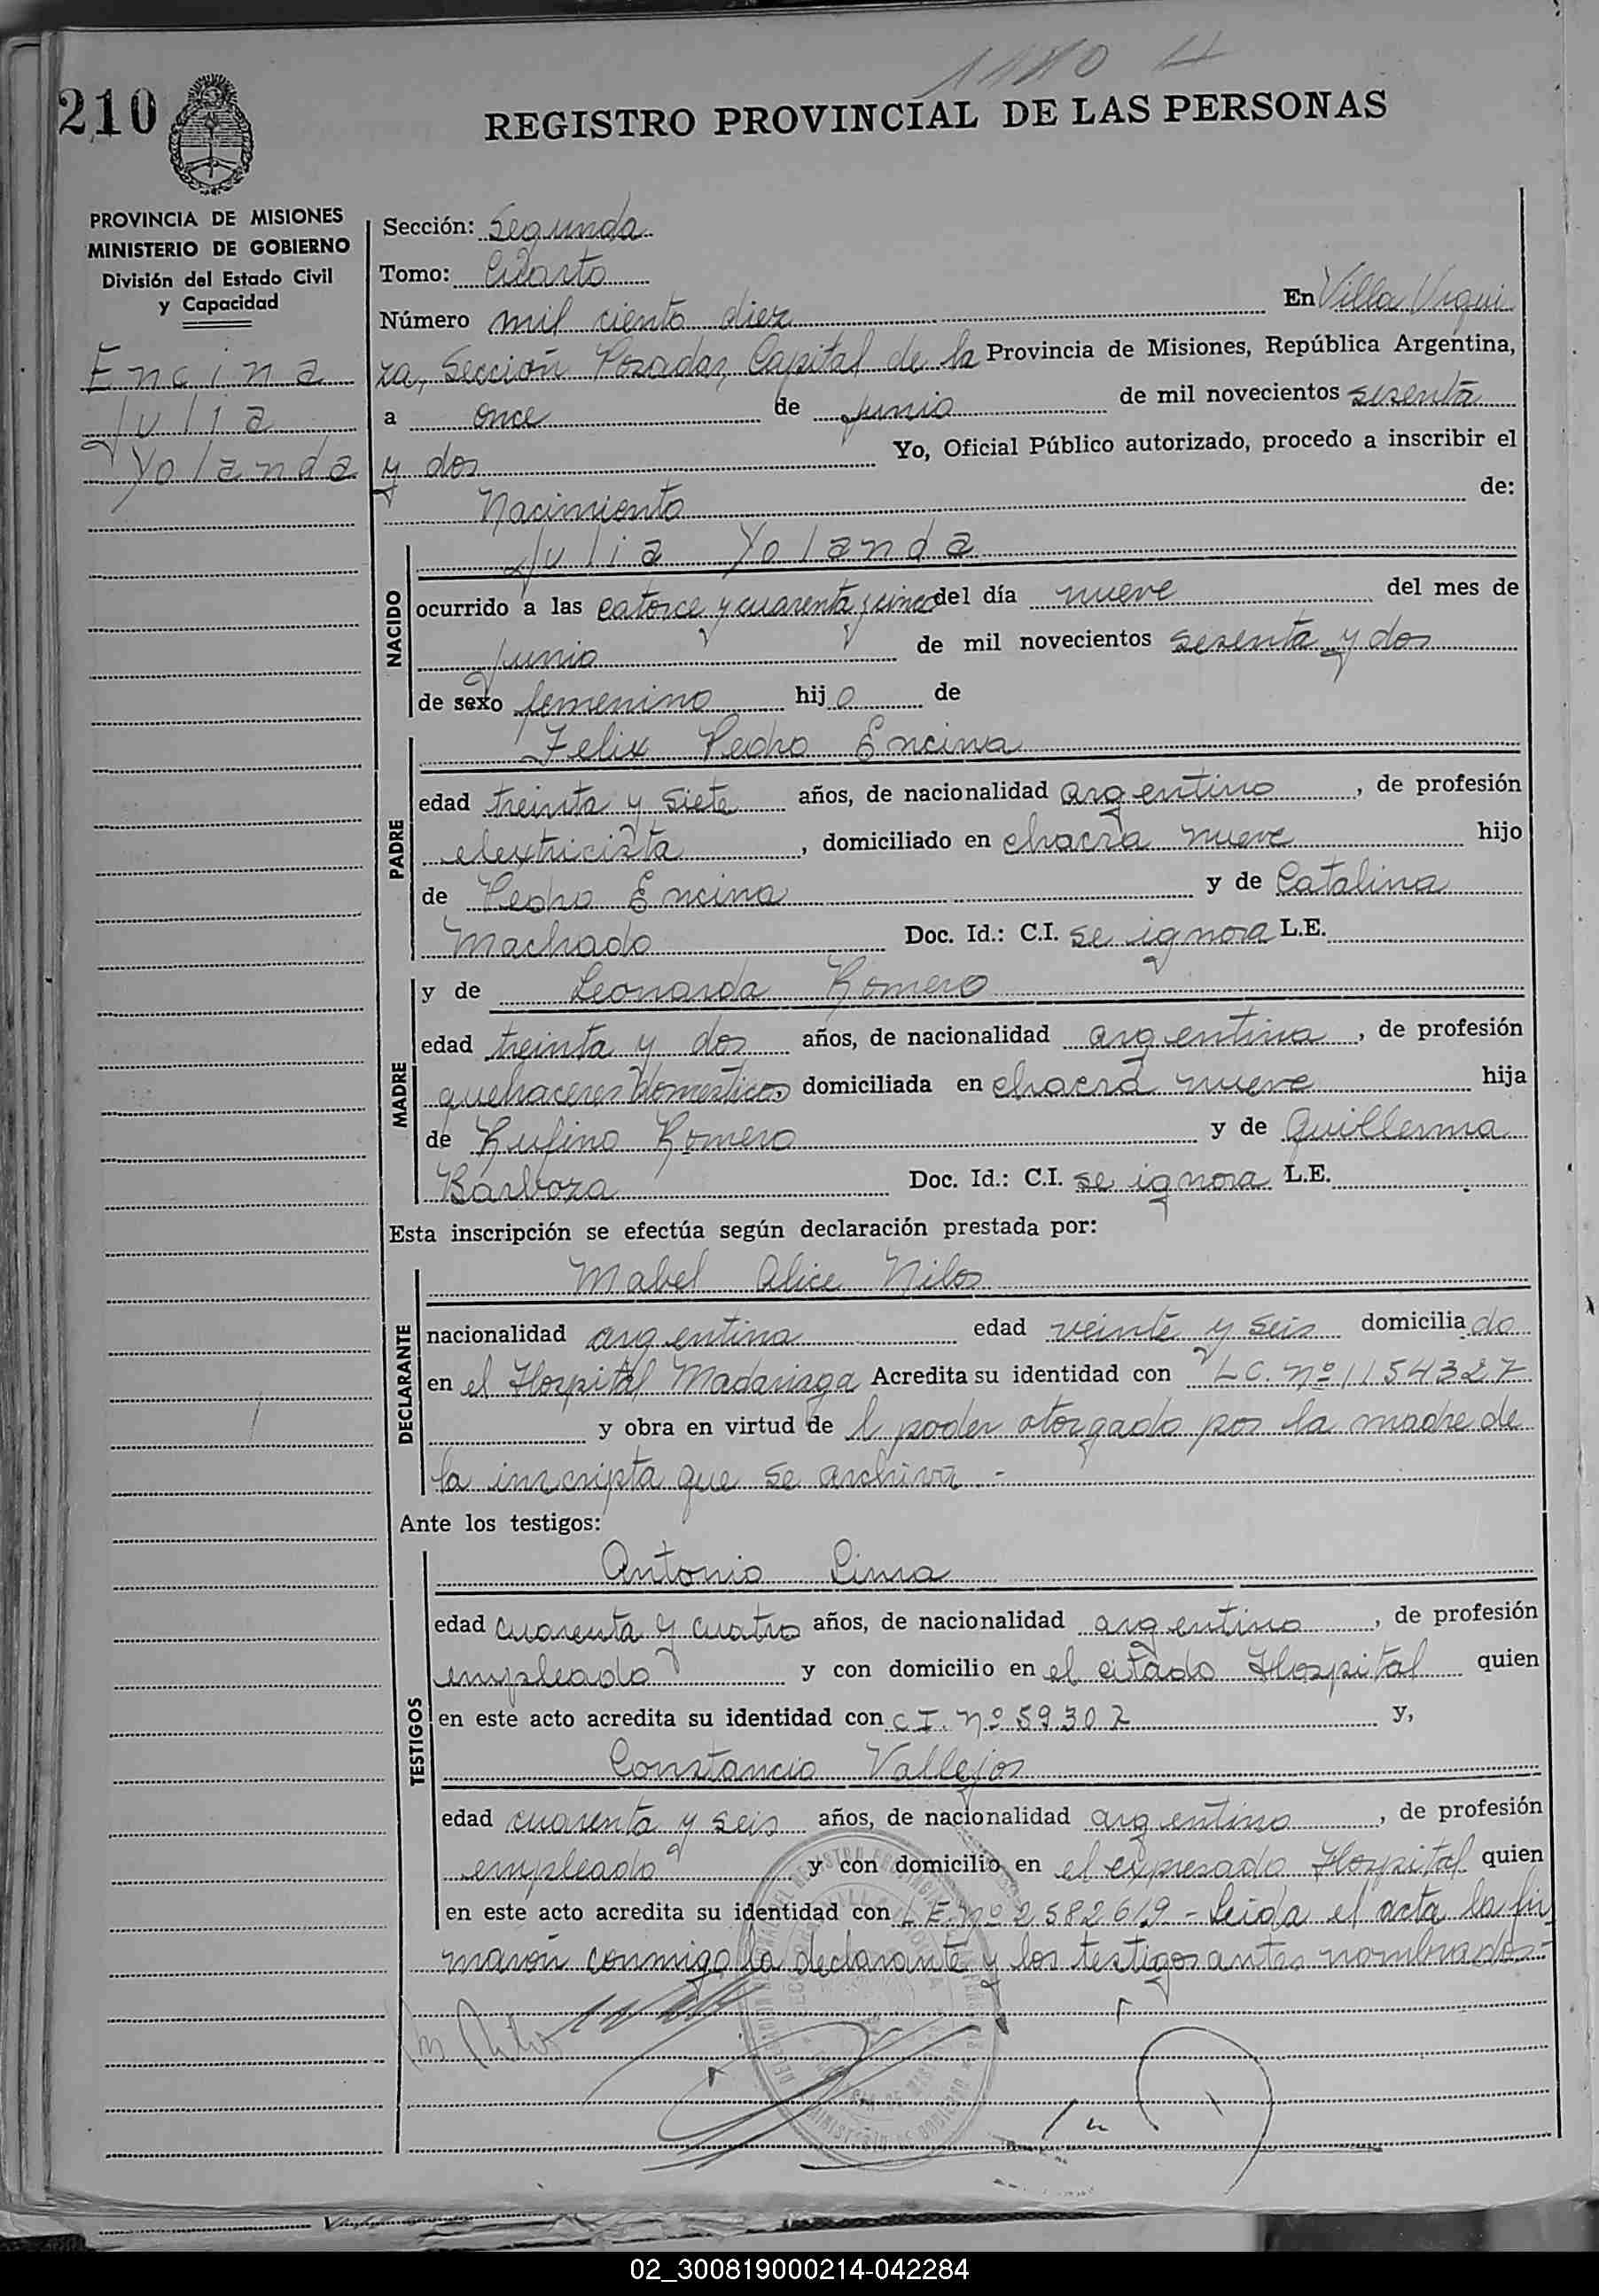 1110
210
REGISTRO PROVINCIAL DE LAS PERSONAS
PROVINCIA DE MISIONES
MINISTERIO DE GOBIERNO
División del Estado Civil
y Capacidad
Encina
Julia
Yolanda
Sección: Segunda
Tomo: Cuarto
Número mil ciento diez En Villa Urqui
za, Sección Posadas, Capital de la Provincia de Misiones, República Argentina,
a once de junio de mil novecientos sesenta
y dos Yo, Oficial Público autorizado, procedo a inscribir el
Nacimiento de:
NACIDO
Julia Yolanda
ocurrido a las catorce y cuarenta y cinco del día nueve del mes de
junio de mil novecientos sesenta y dos
de sexo femenino hij o de
PADRE
Felix Pedro Encina
edad treinta y siete años, de nacionalidad argentino, de profesión
electricista, domiciliado en chacra nueve hijo
de Pedro Encina y de Catalina
Machado Doc. Id.: C.I. se ignora L.E.
MADRE
y de Leonarda Romero
edad treinta y dos años, de nacionalidad argentina, de profesión
quehaceres domesticos domiciliada en chacra nueve hija
de Rufino Romero y de Guillerma
Barboza Doc. Id.: C.I. se ignora L.E.
Esta inscripción se efectúa según declaración prestada por:
DECLARANTE
Mabel Alice Nilos
nacionalidad argentina edad veinte y seis domicilia do
en el Hospital Madariaga Acredita su identidad con L C. Nº 1154327
y obra en virtud de l poder otorgado por la madre de
la inscripta que se archiva.-
Ante los testigos:
TESTIGOS
Antonio Lima
edad cuarenta y cuatro años, de nacionalidad argentino, de profesión
empleado y con domicilio en el citado Hospital quien
en este acto acredita su identidad con C I. Nº 59.302 y,
Constancio Vallejos
edad cuarenta y seis años, de nacionalidad argentino, de profesión
empleado y con domicilio en el expresado Hospital quien
en este acto acredita su identidad con L E. Nº 2582619 - Leida el acta la fir
maron conmigo, la declarante y los testigos antes nombrados-
02_300819000214-042284